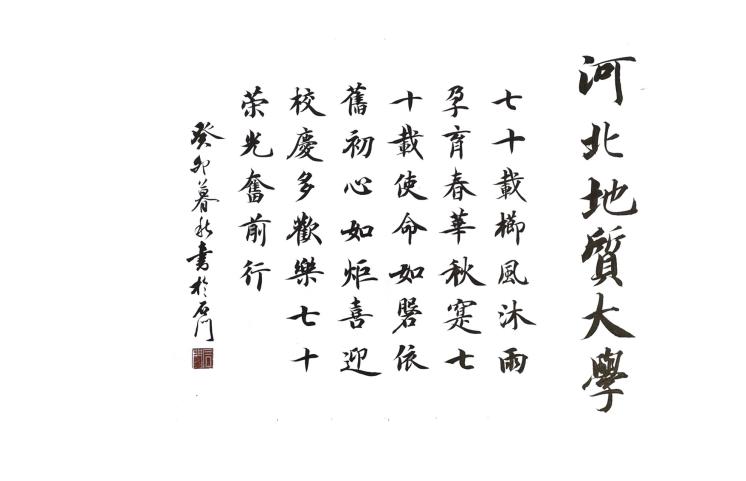 河北地質大學
七十載櫛風沐雨
孕育春華秋寔七
十載使命如磐依
舊初心如炬喜迎
校慶多歡樂七十
荣光奮前行
癸卯暮秋書於石門